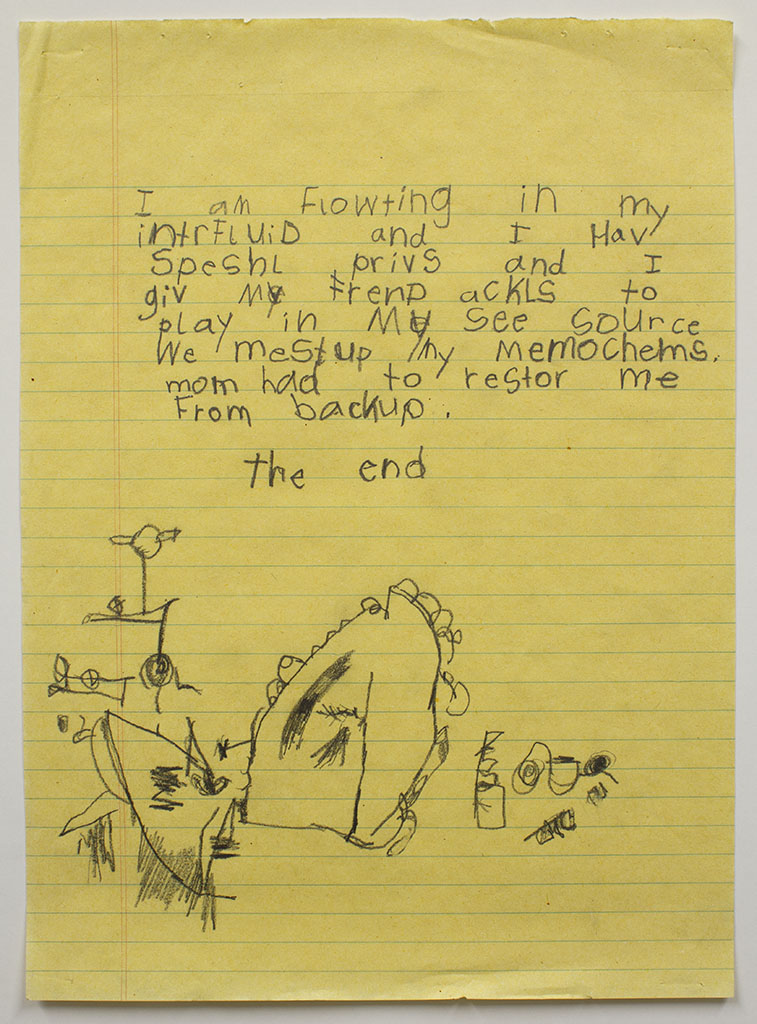 I am Flowting in my
intrFLUiD and I Hav
Speshl privs and I
giv My frenD ackls to
play in My See Source
We mest up My memochems.
mom had to restor me
From backup.
the end